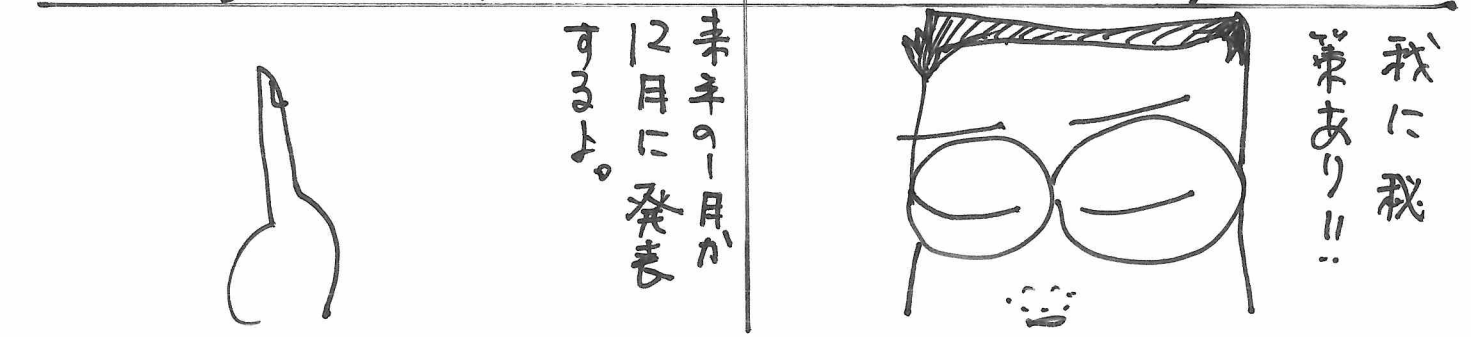 我に秘
策あり!!
来年の1月か
12月に発表
するよ。